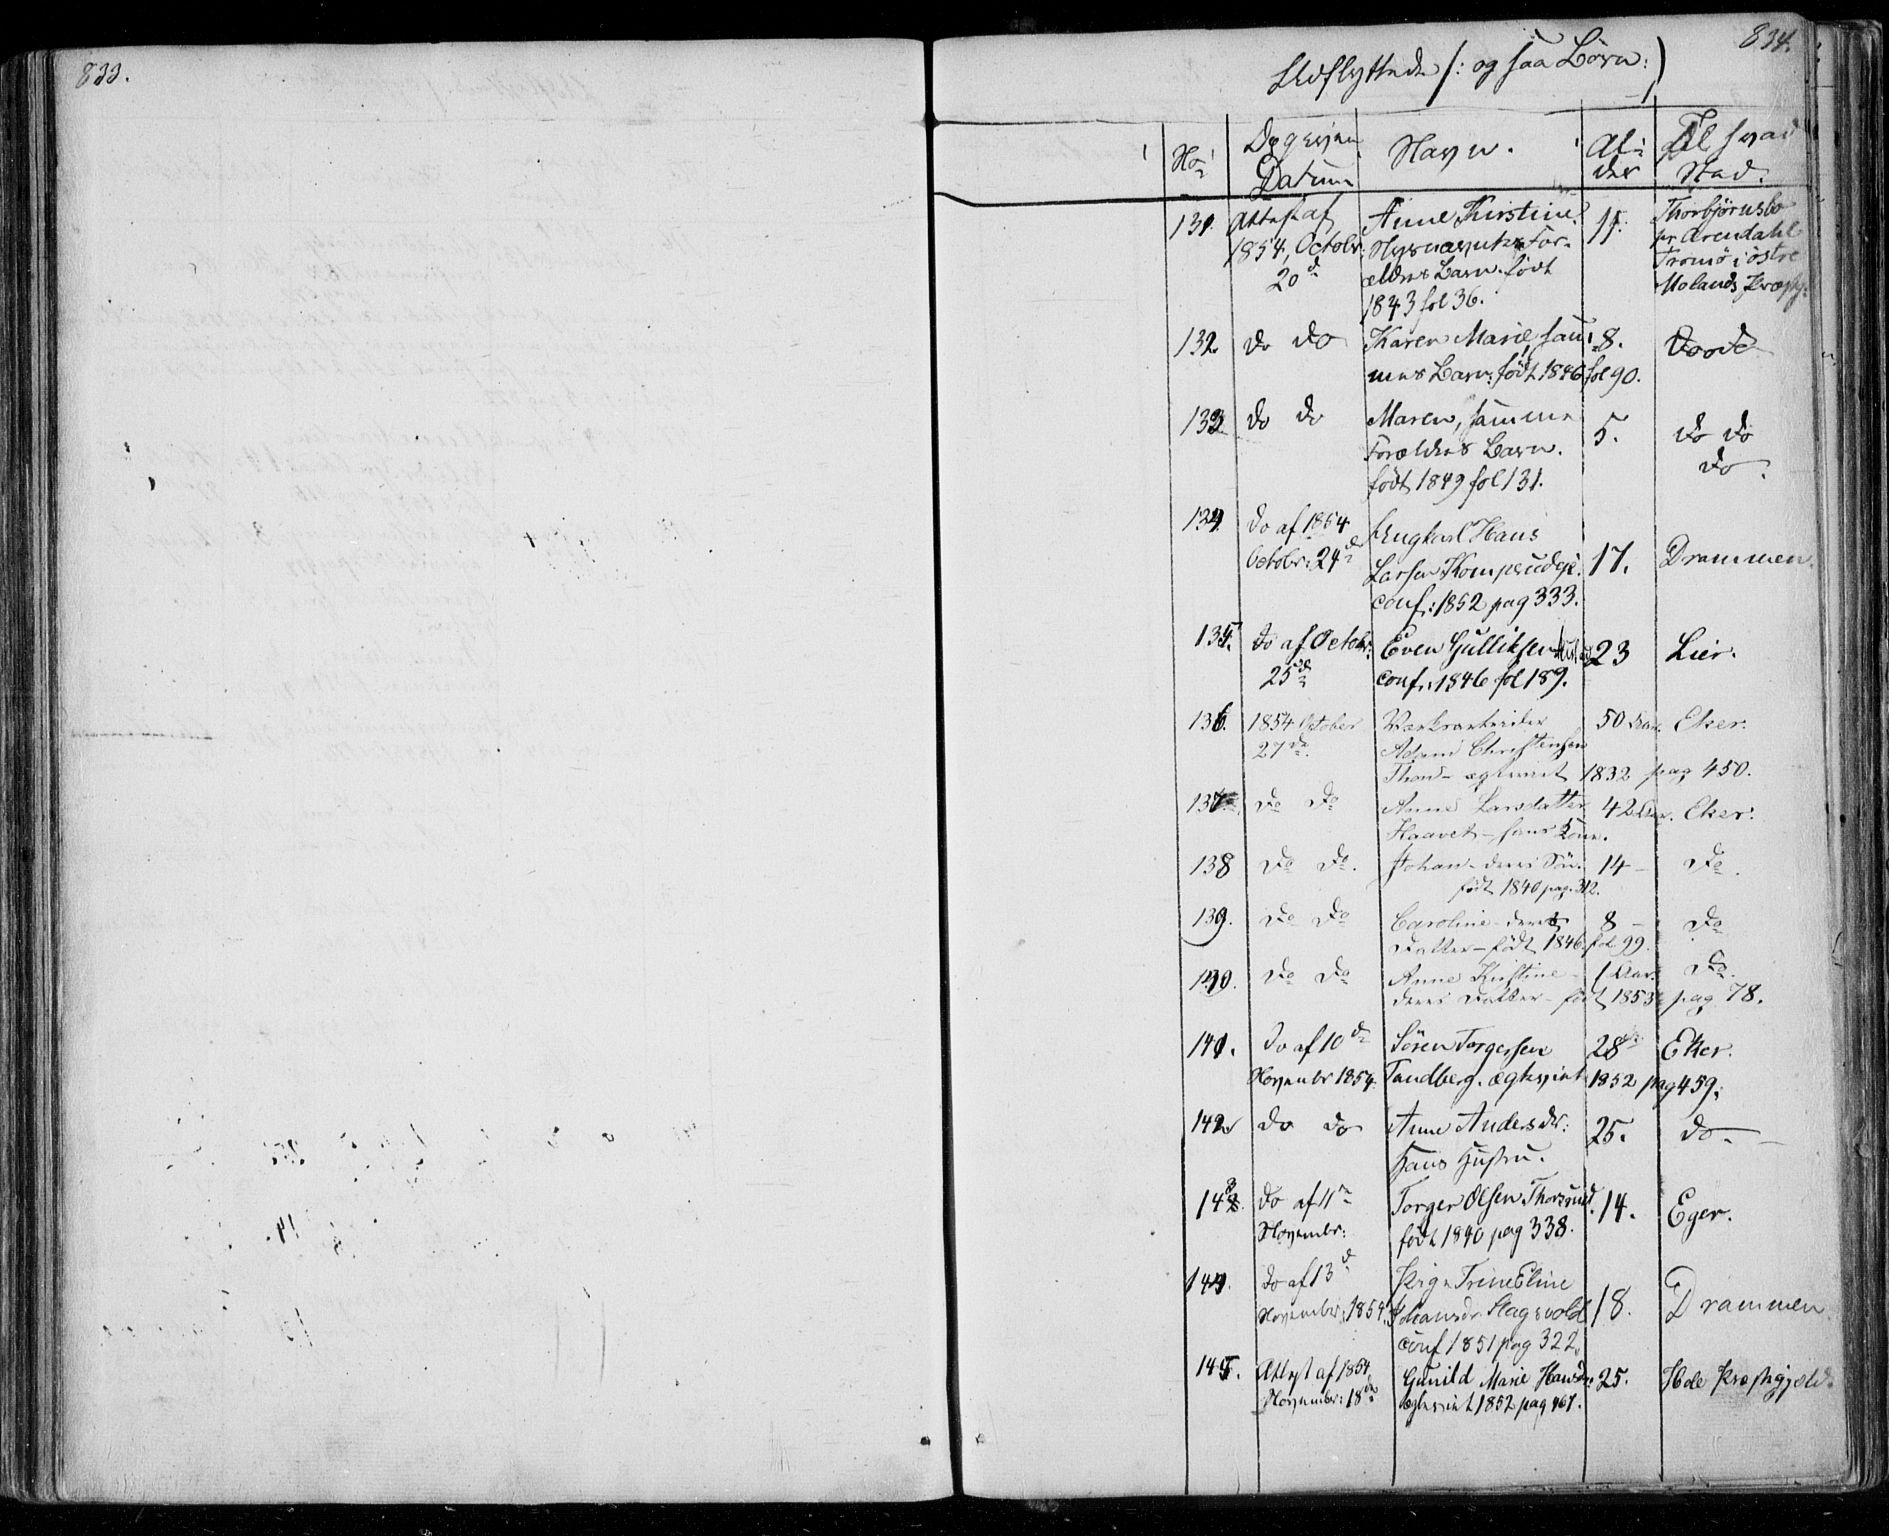 833.
834.
Udflyttede /: ogsaa Børn :/
No
Dag
Datum
Navn.
Al-
der
Til hvad
Stad.
131. Attest af 1854, Octobr: 20de Anne Kirstine Forældres Barn. født 1843 fol 36. 11. Thorbjørnsbo pr Arendahl Tromø i østre Molands Præstg.
132. do do Karen Marie, sam- mes Barn: født 1846 fol 90. 8. do do
133 do do Maren, samme Forældres Barn. født 1849 fol 131. 5. do do do.
134. do af 1854 Octobr: 24de Ungkarl Hans Larsen Komperudeje. conf: 1852 pag 333. 17. Drammen.
135. do af Octobr: 25de Even Gulliksen conf: 1846 fol 189. 23 Lier.
136. 1854 October 27de. Værksarbeider Adam Christensen Thon- egteviet 1832 pag 450. 50 Aar. Eker.
137 do do Anne Larsdatter Haavet - hans Kone. 42 Aar. Eker.
138 do do. Johan - deres Søn. født 1840 pag. 312. 14 - do.
139. do do Caroline - deres Datter - født 1846. fol 99. 8 - do
140. do do Anne Kirstine - deres Datter - født 1853 pag 78. 1 Aar. do.
141. do af 10de Novembr 1854. Sören Torgersen Tandberg. ægteviet 1852 pag 459. 28 Eker.
142. do do Anne Andersdr: Hans Hustru. 25. do.
143. do af 11te Novembr: Torger Olsen Thorsrud. født 1840 pag 338. 14. Eger.
144. do af 13de November: 1854. Pige Trine Eline Johansdr. Slagsvold conf 1851 pag 322. 18. Drammen
145. Attest af 1854, November: 18de Gunild Marie Hansdr: ægteviet 1852 pag 461. 25. Hole Præstegjeld.